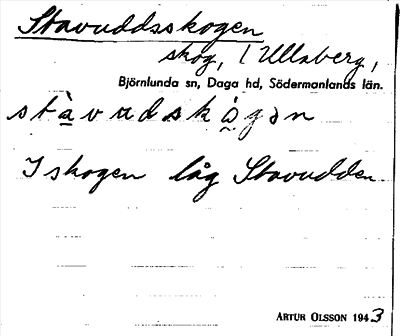 Stavuddsskogen
skog, i Ullaberg,
Björnlunda sn, Daga hd, Södermanlands län.
I skogen låg Stavudden
ARTUR OLSSON 1943